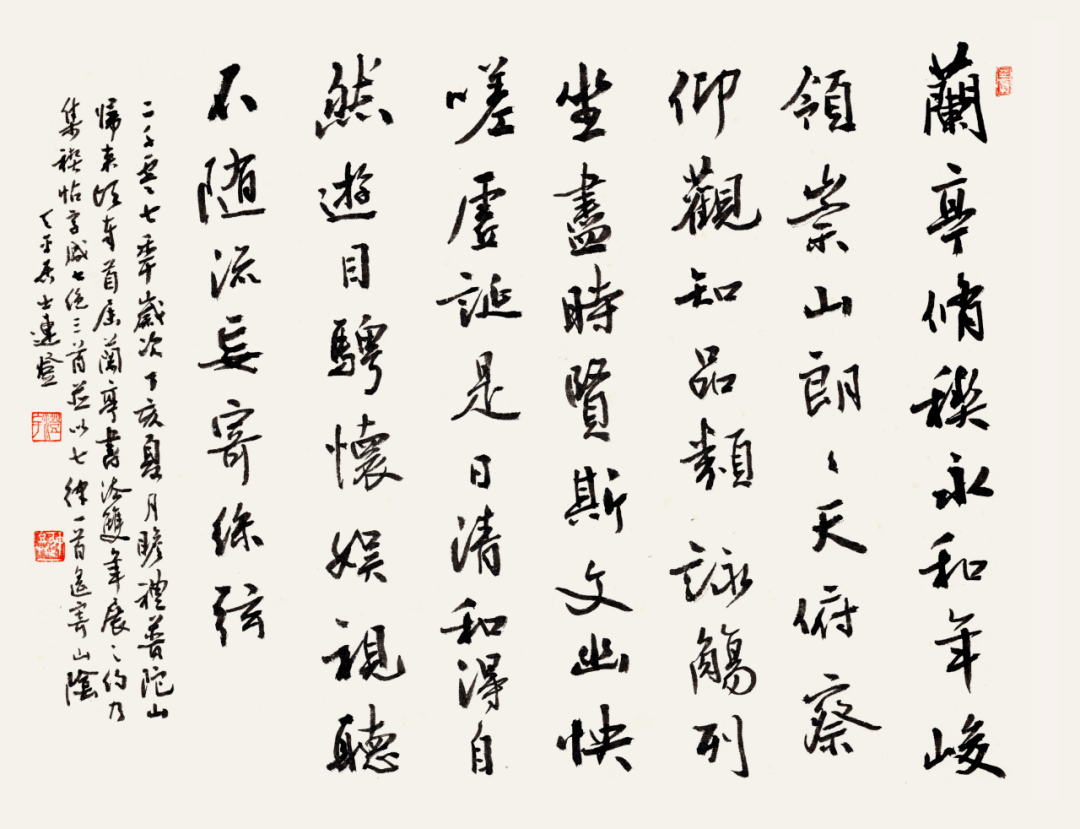 蘭亭脩稧永和年峻
領崇山朗〻天俯察
仰觀知品類詠觴列
坐盡時賢斯文幽怏
嗟虛誕是日清和得自
然遊目騁懷娛視聽
不隨流妄寄絲弦
二千零七年歲次丁亥夏月瞻禮普陀山
歸來頃奉首屆蘭亭書法雙年展之約乃
集禊帖字成七絕三首並以七律一首遙寄山陰
天平居士連登